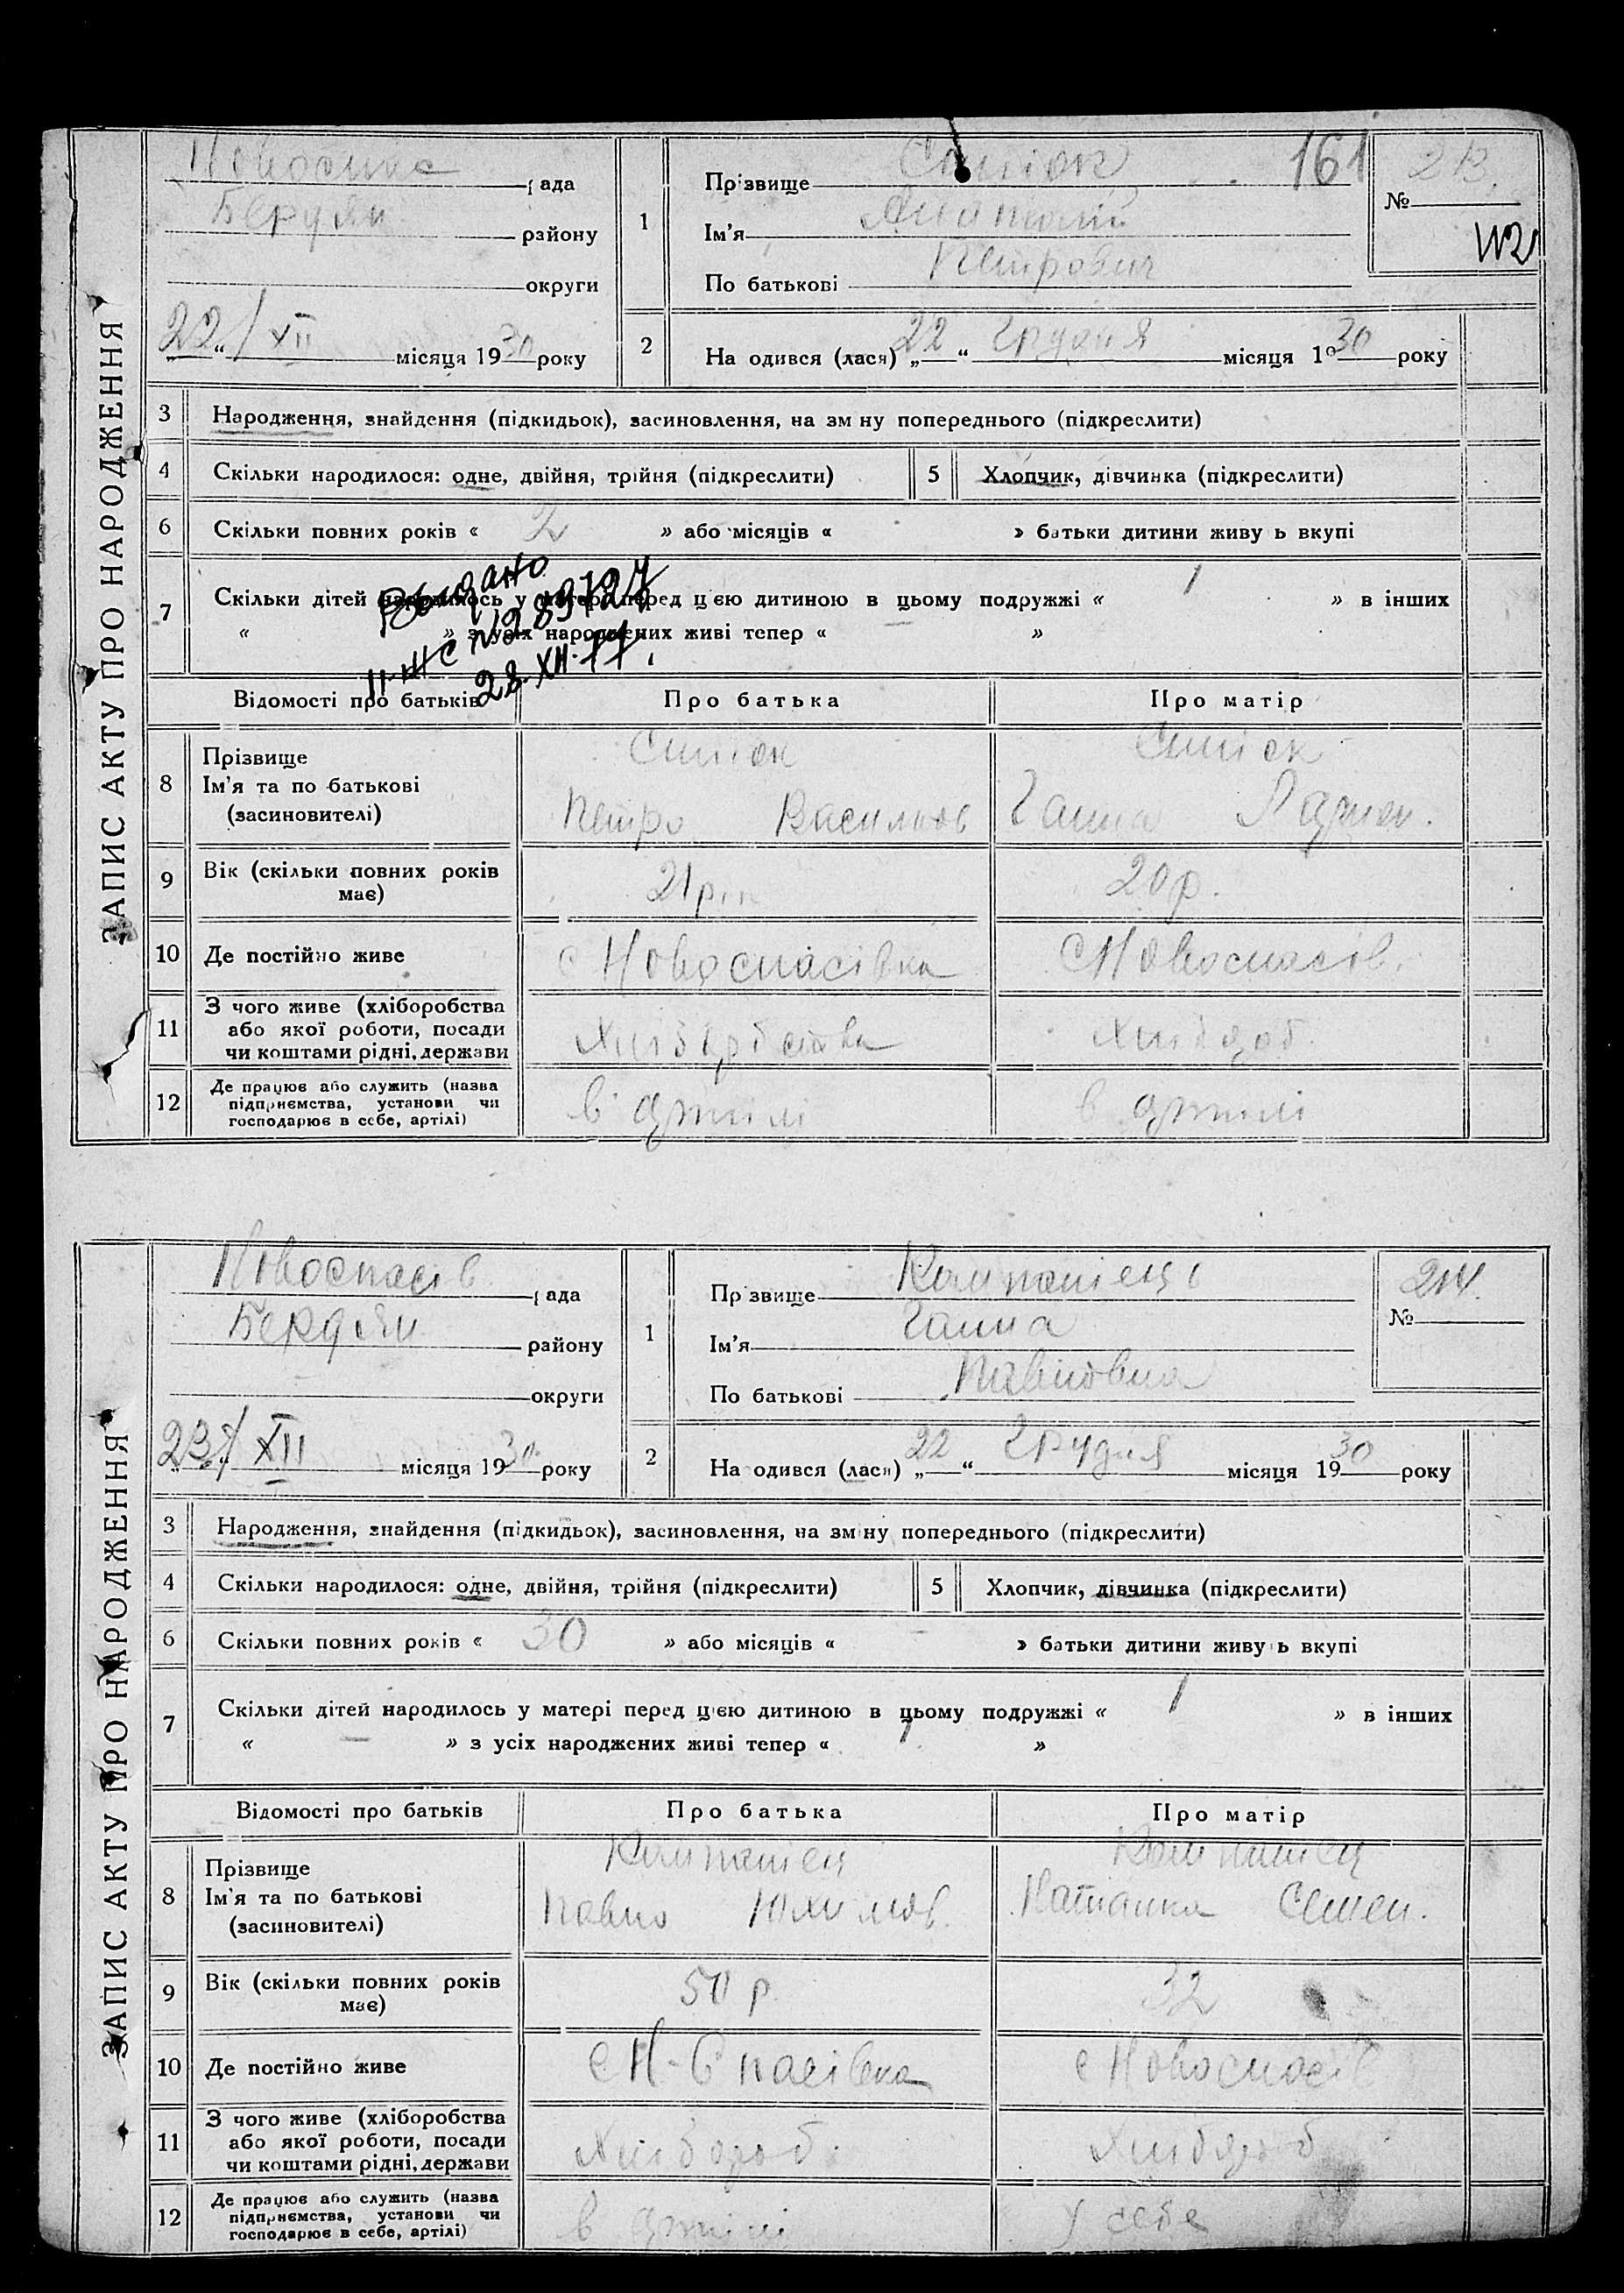 ЗАПИС АКТУ ПРО НАРОДЖЕННЯ
рада
Бердян району
округи
22/XII місяця 1930 року
161
1 Прізвище
Ім'я Анатолій
По батькові Петрович
№ 213.
2 На одився (лася) „22“ Грудня місяця 1930 року
3 Народження, знайдення (підкидьок), засиновлення, на зм ну попереднього (підкреслити)
4 Скільки народилося: одне, двійня, трійня (підкреслити) 5 Хлопчик, дівчинка (підкреслити)
6 Скільки повних років « 2 » або місяців « » батьки дитини живу ь вкупі
7 Скільки дітей народилось у матері перед цією дитиною в цьому подружжі « 1 » в інших
« » з усіх народжених живі тепер « »
Выдано
II-ЖС №289727
28.XII.77.
Відомості про батьків Про батька Про матір
8 Прізвище
Ім'я та по батькові Петро Васильов Ганна
(засиновителі)
9 Вік (скільки повних років має) 21 20 р.
10 Де постійно живе с Новоспасівка с Новоспасів.
11 З чого живе (хліборобства
або якої роботи, посади
чи коштами рідні, держави
12 Де працює або служить (назва
підприємства, установи чи
господарює в себе, артілі) в артілі в артілі
ЗАПИС АКТУ ПРО НАРОДЖЕННЯ
Новоспасів рада
Бердян району
округи
23/XII місяця 1930 року
1 Прізвище Компанієць
Ім'я Ганна
По батькові Павлівна
№ 214.
2 На одився (лася) „22“ Грудня місяця 1930 року
3 Народження, знайдення (підкидьок), засиновлення, на зм ну попереднього (підкреслити)
4 Скільки народилося: одне, двійня, трійня (підкреслити) 5 Хлопчик, дівчинка (підкреслити)
6 Скільки повних років « 30 » або місяців « – » батьки дитини живу ь вкупі
7 Скільки дітей народилось у матері перед цією дитиною в цьому подружжі « 1 » в інших
« — » з усіх народжених живі тепер « 1 »
Відомості про батьків Про батька Про матір
8 Прізвище Компанієц Компанієц
Ім'я та по батькові Павло Юхимов. Наталка Семен.
(засиновителі)
9 Вік (скільки повних років має) 50 р. 32
10 Де постійно живе с Н-Спасівка с Новоспасів
11 З чого живе (хліборобства
або якої роботи, посади Хлібороб. Хлібороб
чи коштами рідні, держави
12 Де працює або служить (назва
підприємства, установи чи
господарює в себе, артілі) в артілі у себе